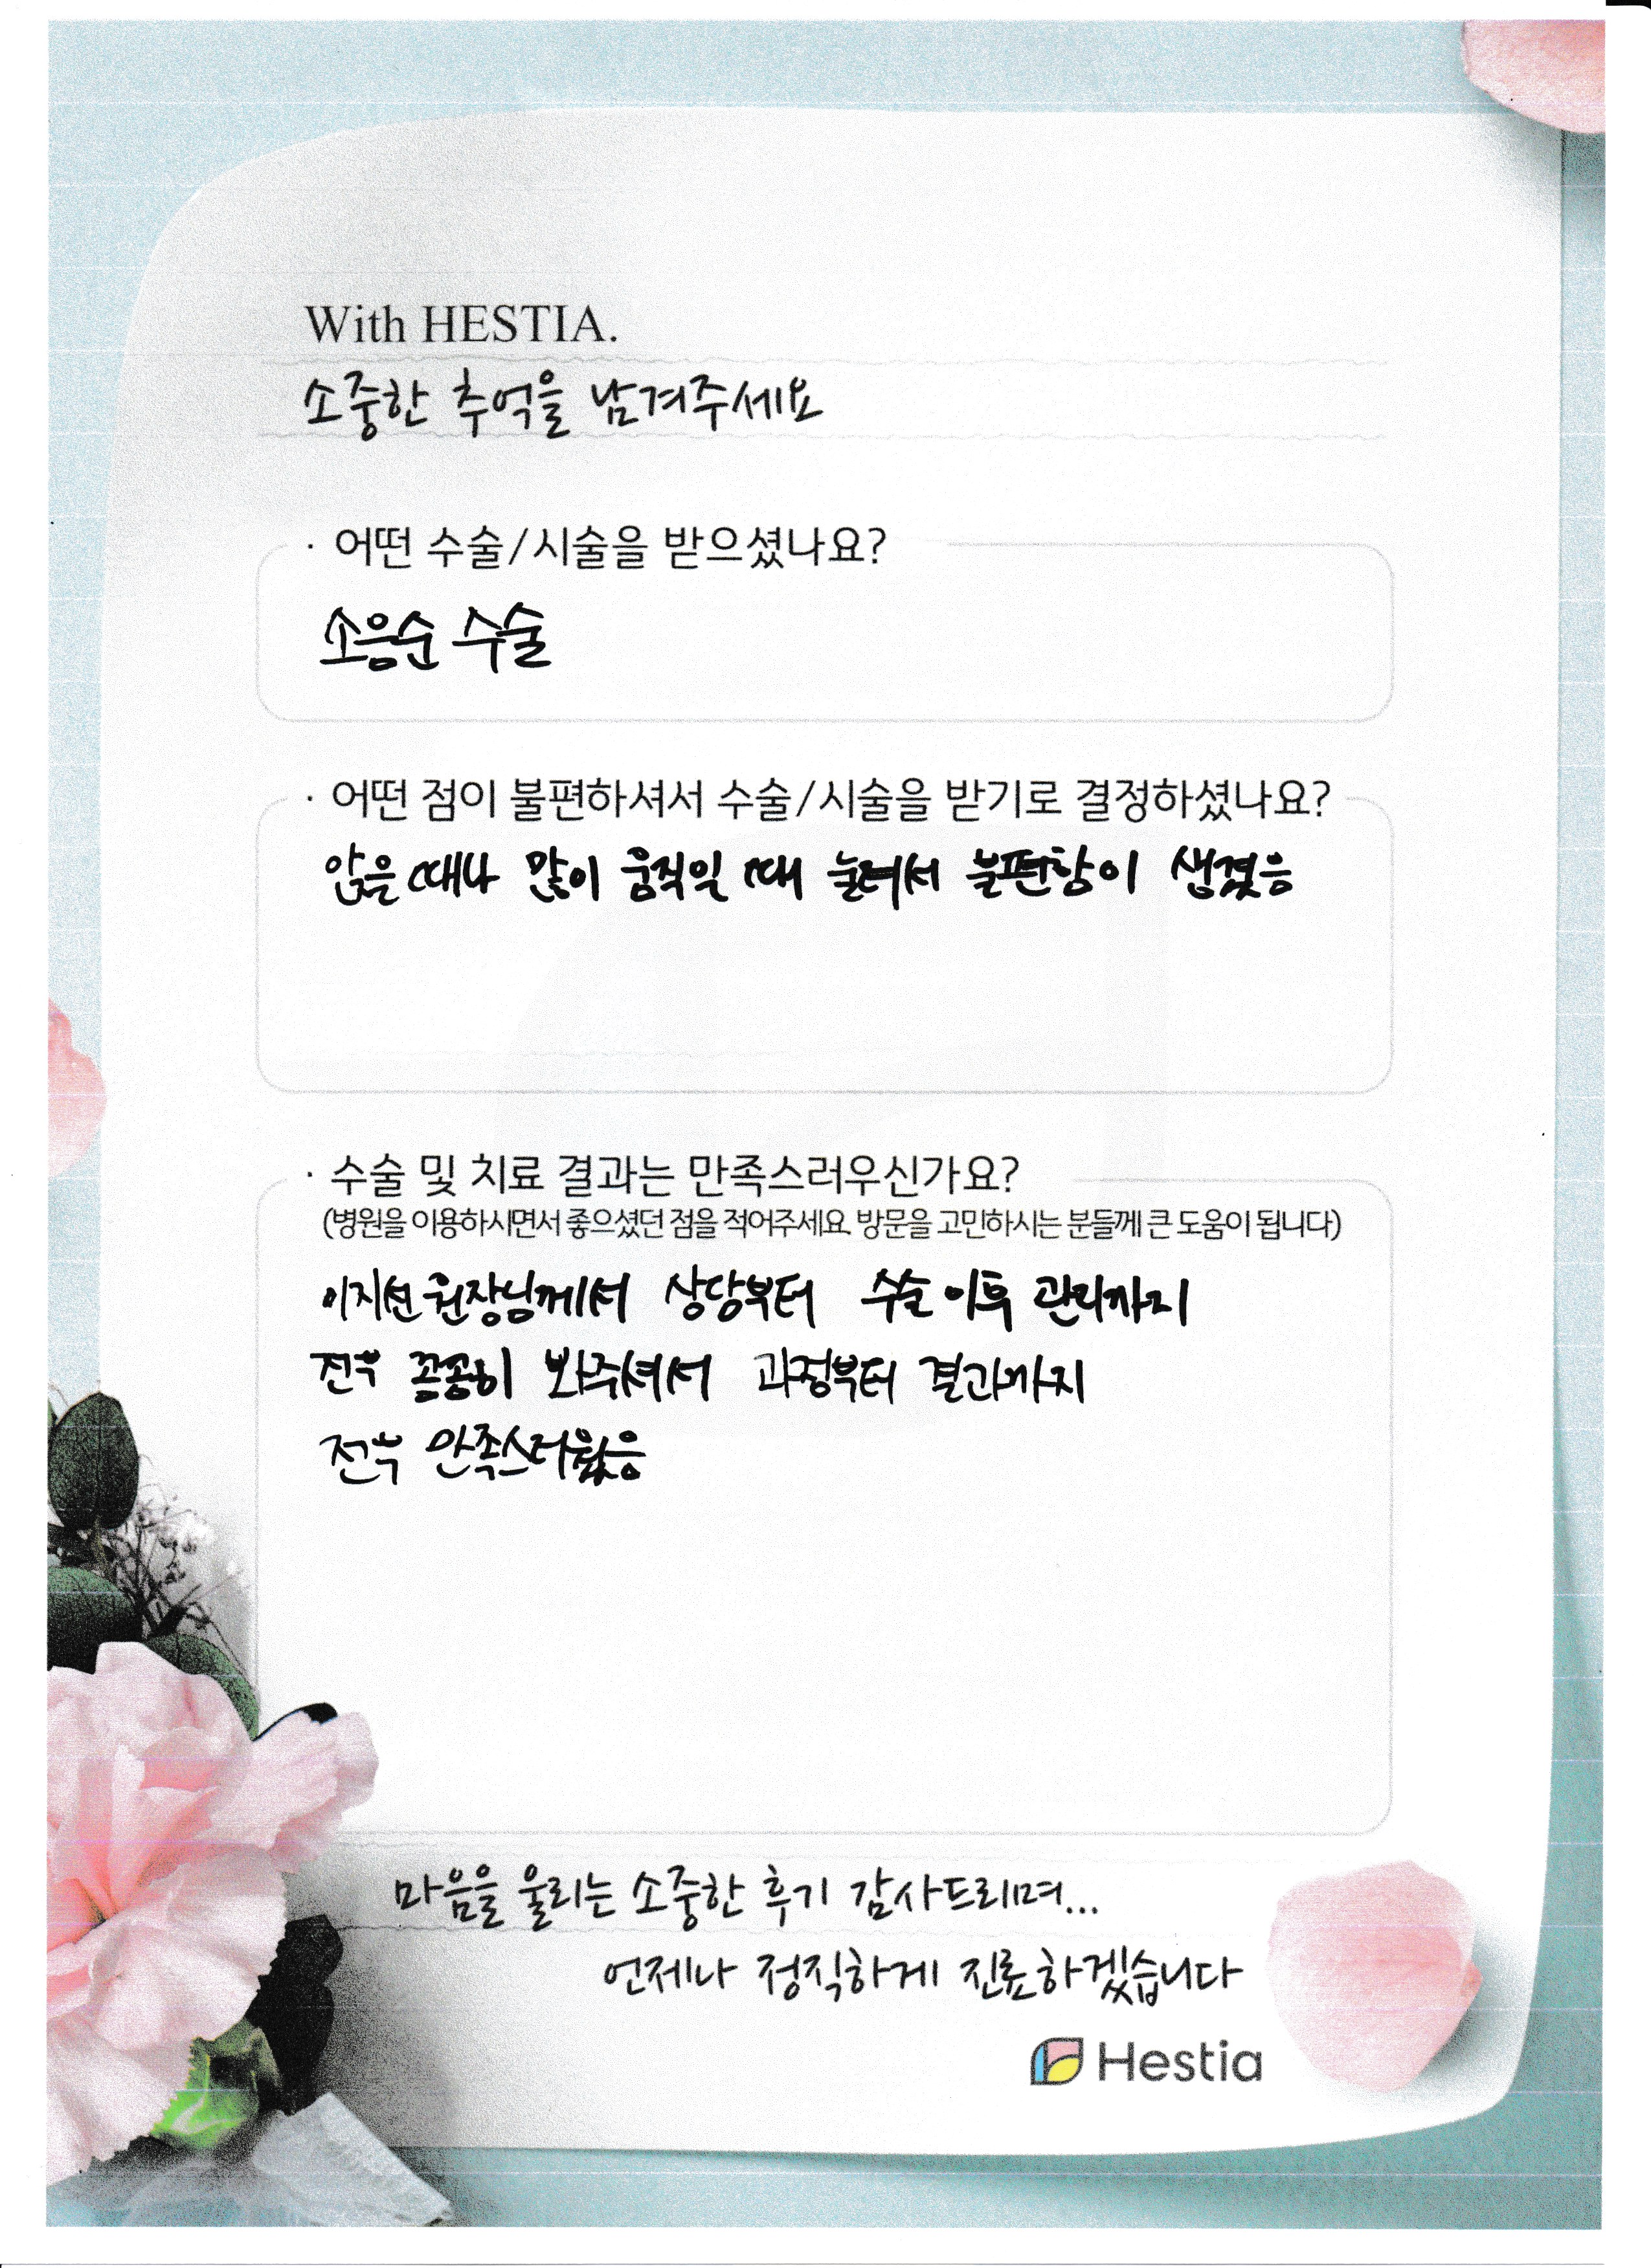 With HESTIA.
소중한 추억을 남겨주세요
· 어떤 수술/시술을 받으셨나요?
소음순 수술
· 어떤 점이 불편하셔서 수술/시술을 받기로 결정하셨나요?
앉을 때나 많이 움직일 때 눌려서 불편함이 생겼음
· 수술 및 치료 결과는 만족스러우신가요?
(병원을 이용하시면서 좋으셨던 점을 적어주세요. 방문을 고민하시는 분들께 큰 도움이 됩니다)
이지선 원장님께서 상담부터 수술 이후 관리까지
전부 꼼꼼히 봐주셔서 과정부터 결과까지
전부 만족스러웠음
마음을 울리는 소중한 후기 감사드리며...
언제나 정직하게 진료하겠습니다
Hestia